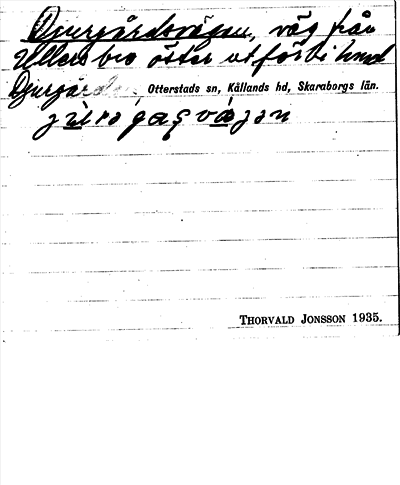 Djurgårdsvägen, väg från
Ullersbro öster ut förbi
Djurgården Otterstads sn, Kållands hd, Skaraborgs län.
THORVALD JONSSON 1935.